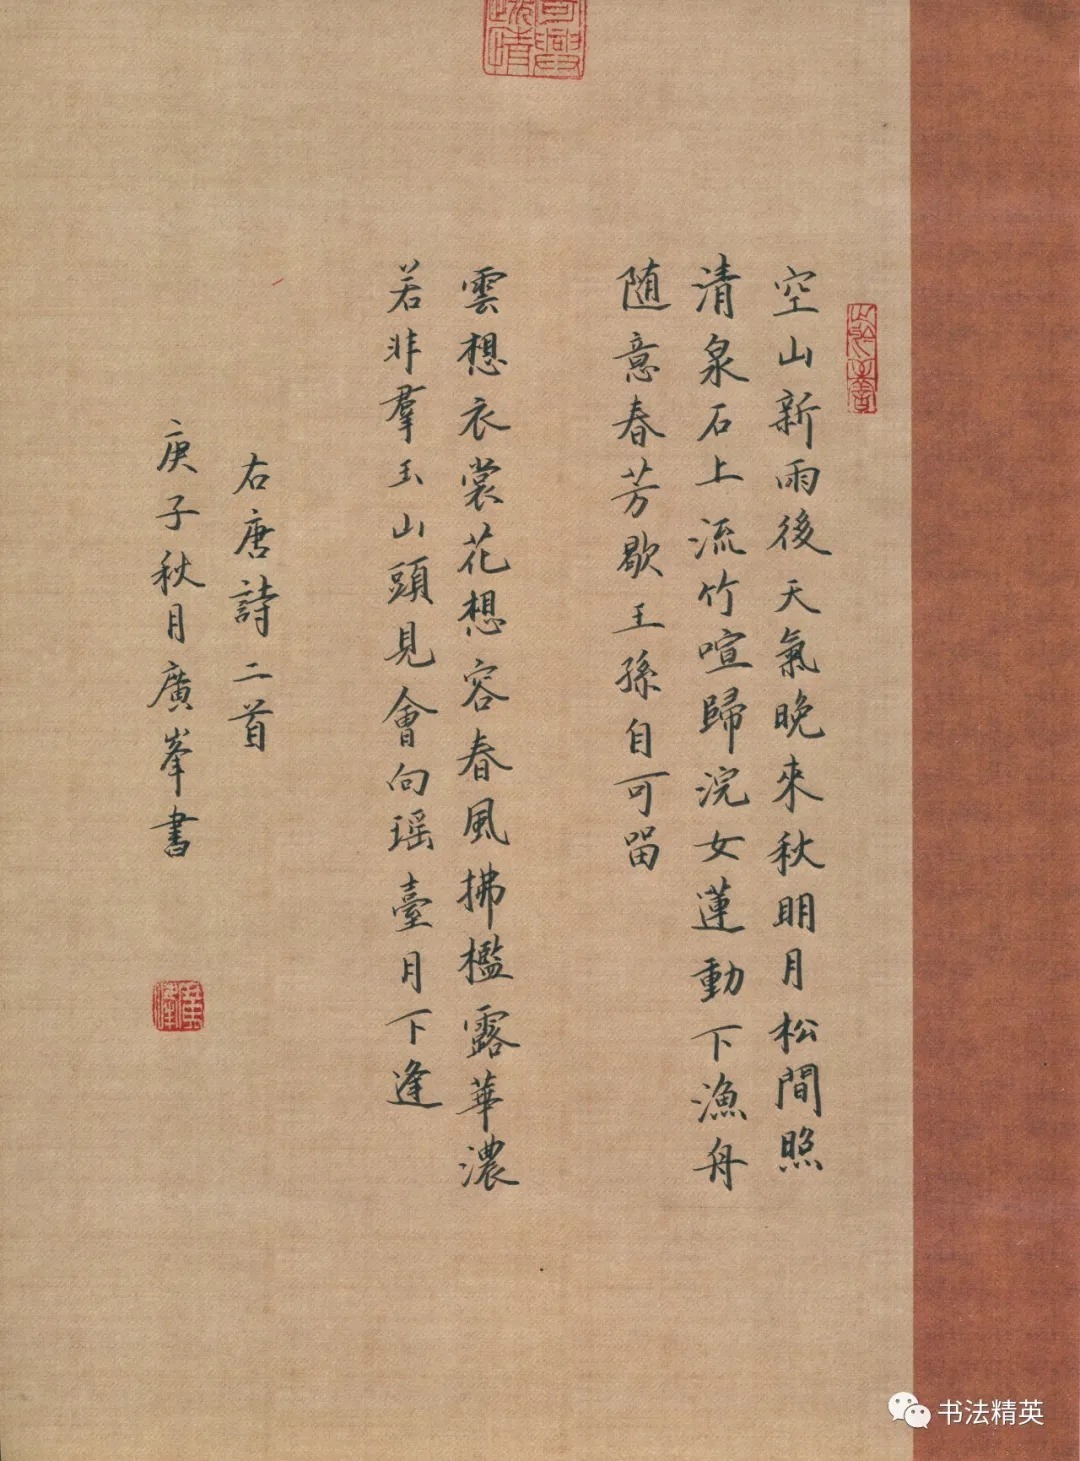 空山新雨後天氣晚來秋明月松間照
清泉石上流竹喧歸浣女蓮動下漁舟
随意春芳歇王孫自可留
雲想衣裳花想容春風拂檻露華濃
若非羣玉山頭見會向瑶臺月下逢
右唐詩二首
庚子秋月廣峯書
书法精英